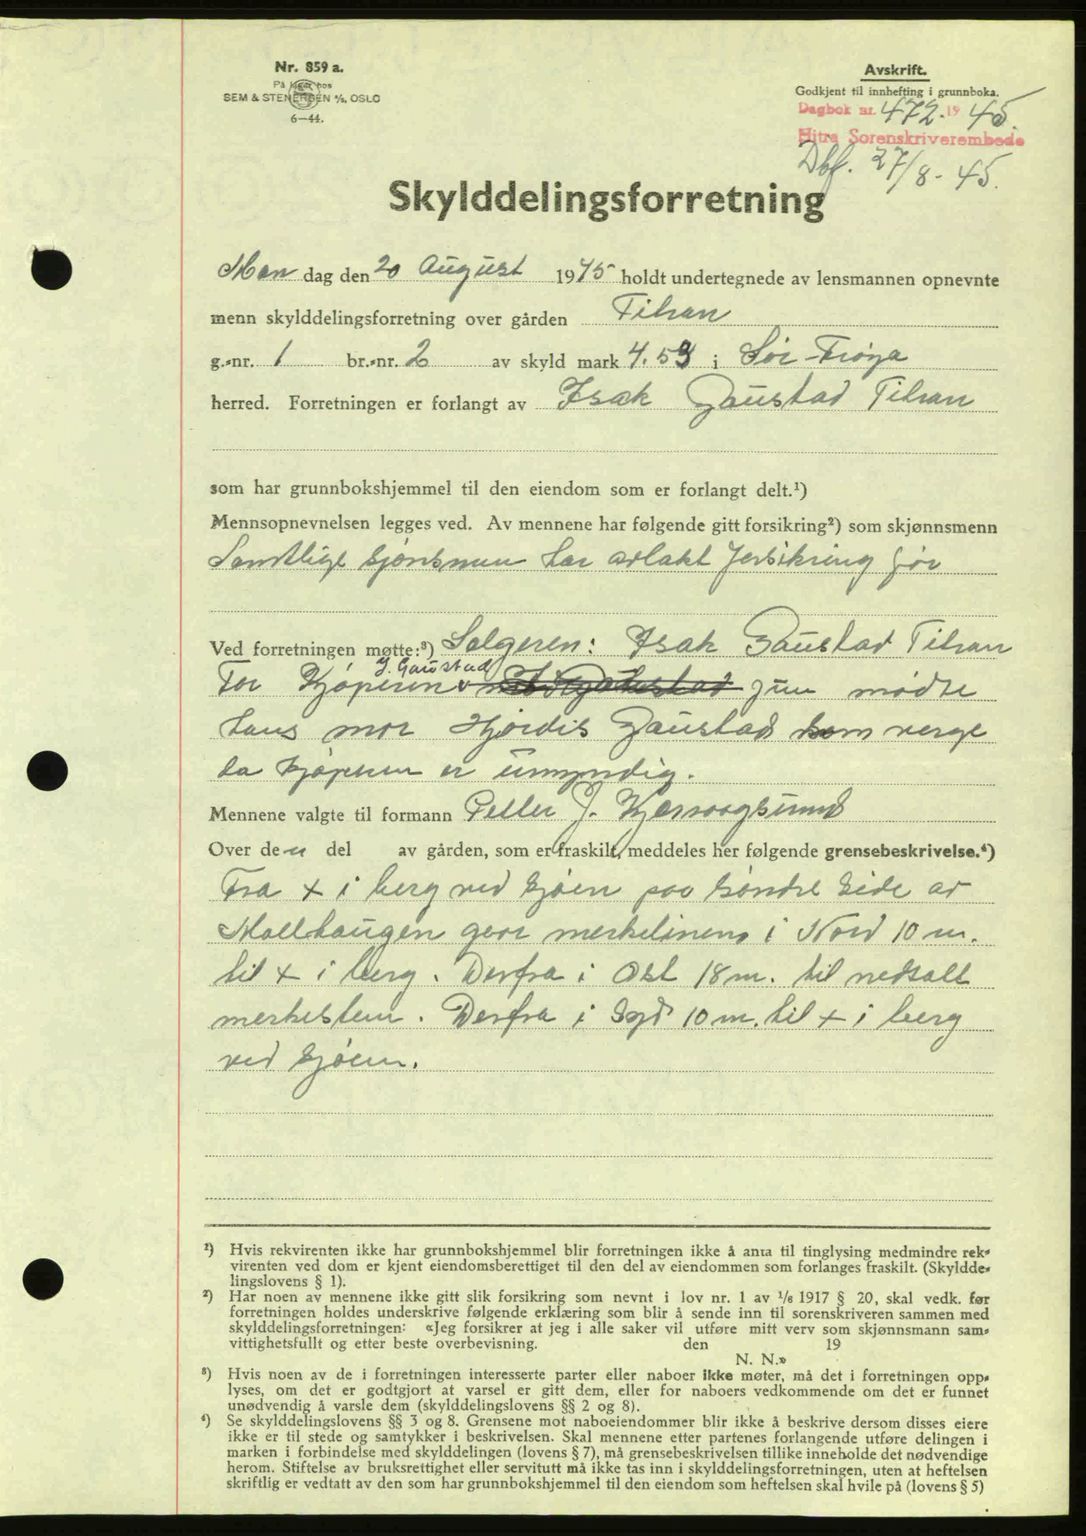 Nr. 859 a.
På lager hos
SEM & STENERSEN A/S, OSLO
6—44.
Avskrift.
Godkjent til innhefting i grunnboka.
Dagbok nr. 472. 19 45.
Hitra Sorenskriverembede
Dbf. 27/8-45.
Skylddelingsforretning
Man dag den 20 August 1945 holdt undertegnede av lensmannen opnevnte
menn skylddelingsforretning over gården Titran
g.-nr. 1 br.-nr. 2 av skyld mark 4.53 i Sør-Frøya
herred. Forretningen er forlangt av Isak Gaustad Titran
som har grunnbokshjemmel til den eiendom som er forlangt delt.¹)
Mennsopnevnelsen legges ved. Av mennene har følgende gitt forsikring²) som skjønnsmenn
Samtlige sjønsmen har avlakt forsikring før
Ved forretningen møtte:³) Selgeren: Isak Gaustad Titran
J. Gaustad
For Kjøperen jun mødte
hans mor Hjørdis Gaustad som verge
da kjøperen er umyndig.
Mennene valgte til formann Petter J. Kjervaagsund
Over den del av gården, som er fraskilt, meddeles her følgende grensebeskrivelse.⁴)
Fra + i berg ved sjøen paa søndre side av
Mollhaugen gaar merkelinen i Nord 10 m.
til + i berg. Derfra i Øst 18 m. til nedsatt
merkesten. Derfra i Syd 10 m. til + i berg
ved sjøen.
¹) Hvis rekvirenten ikke har grunnbokshjemmel blir forretningen ikke å anta til tinglysing medmindre rek-
virenten ved dom er kjent eiendomsberettiget til den del av eiendommen som forlanges fraskilt. (Skyldde-
lingslovens § 1).
²) Har noen av mennene ikke gitt slik forsikring som nevnt i lov nr. 1 av 1/6 1917 § 20, skal vedk. før
forretningen holdes underskrive følgende erklæring som blir å sende inn til sorenskriveren sammen med
skylddelingsforretningen: «Jeg forsikrer at jeg i alle saker vil utføre mitt verv som skjønnsmann sam-
vittighetsfullt og etter beste overbevisning. den 19
N. N.»
³) Hvis noen av de i forretningen interesserte parter eller naboer ikke møter, må det i forretningen opp-
lyses, om det er godtgjort at varsel er gitt dem, eller for naboers vedkommende om det er funnet
unødvendig å varsle dem (skylddelingslovens §§ 2 og 8).
⁴) Se skylddelingslovens §§ 3 og 8. Grensene mot naboeiendommer blir ikke å beskrive dersom disses eiere
ikke er til stede og samtykker i beskrivelsen. Skal mennene etter partenes forlangende utføre delingen i
marken i forbindelse med skylddelingen (lovens § 7), må grensebeskrivelsen tillike inneholde det nødvendige
herom. Stiftelse av bruksrettighet eller servitutt må ikke tas inn i skylddelingsforretningen, uten at heftelsen
skriftlig er vedtatt av den som har grunnbokshjemmel til den eiendom som heftelsen skal hvile på (lovens § 5)